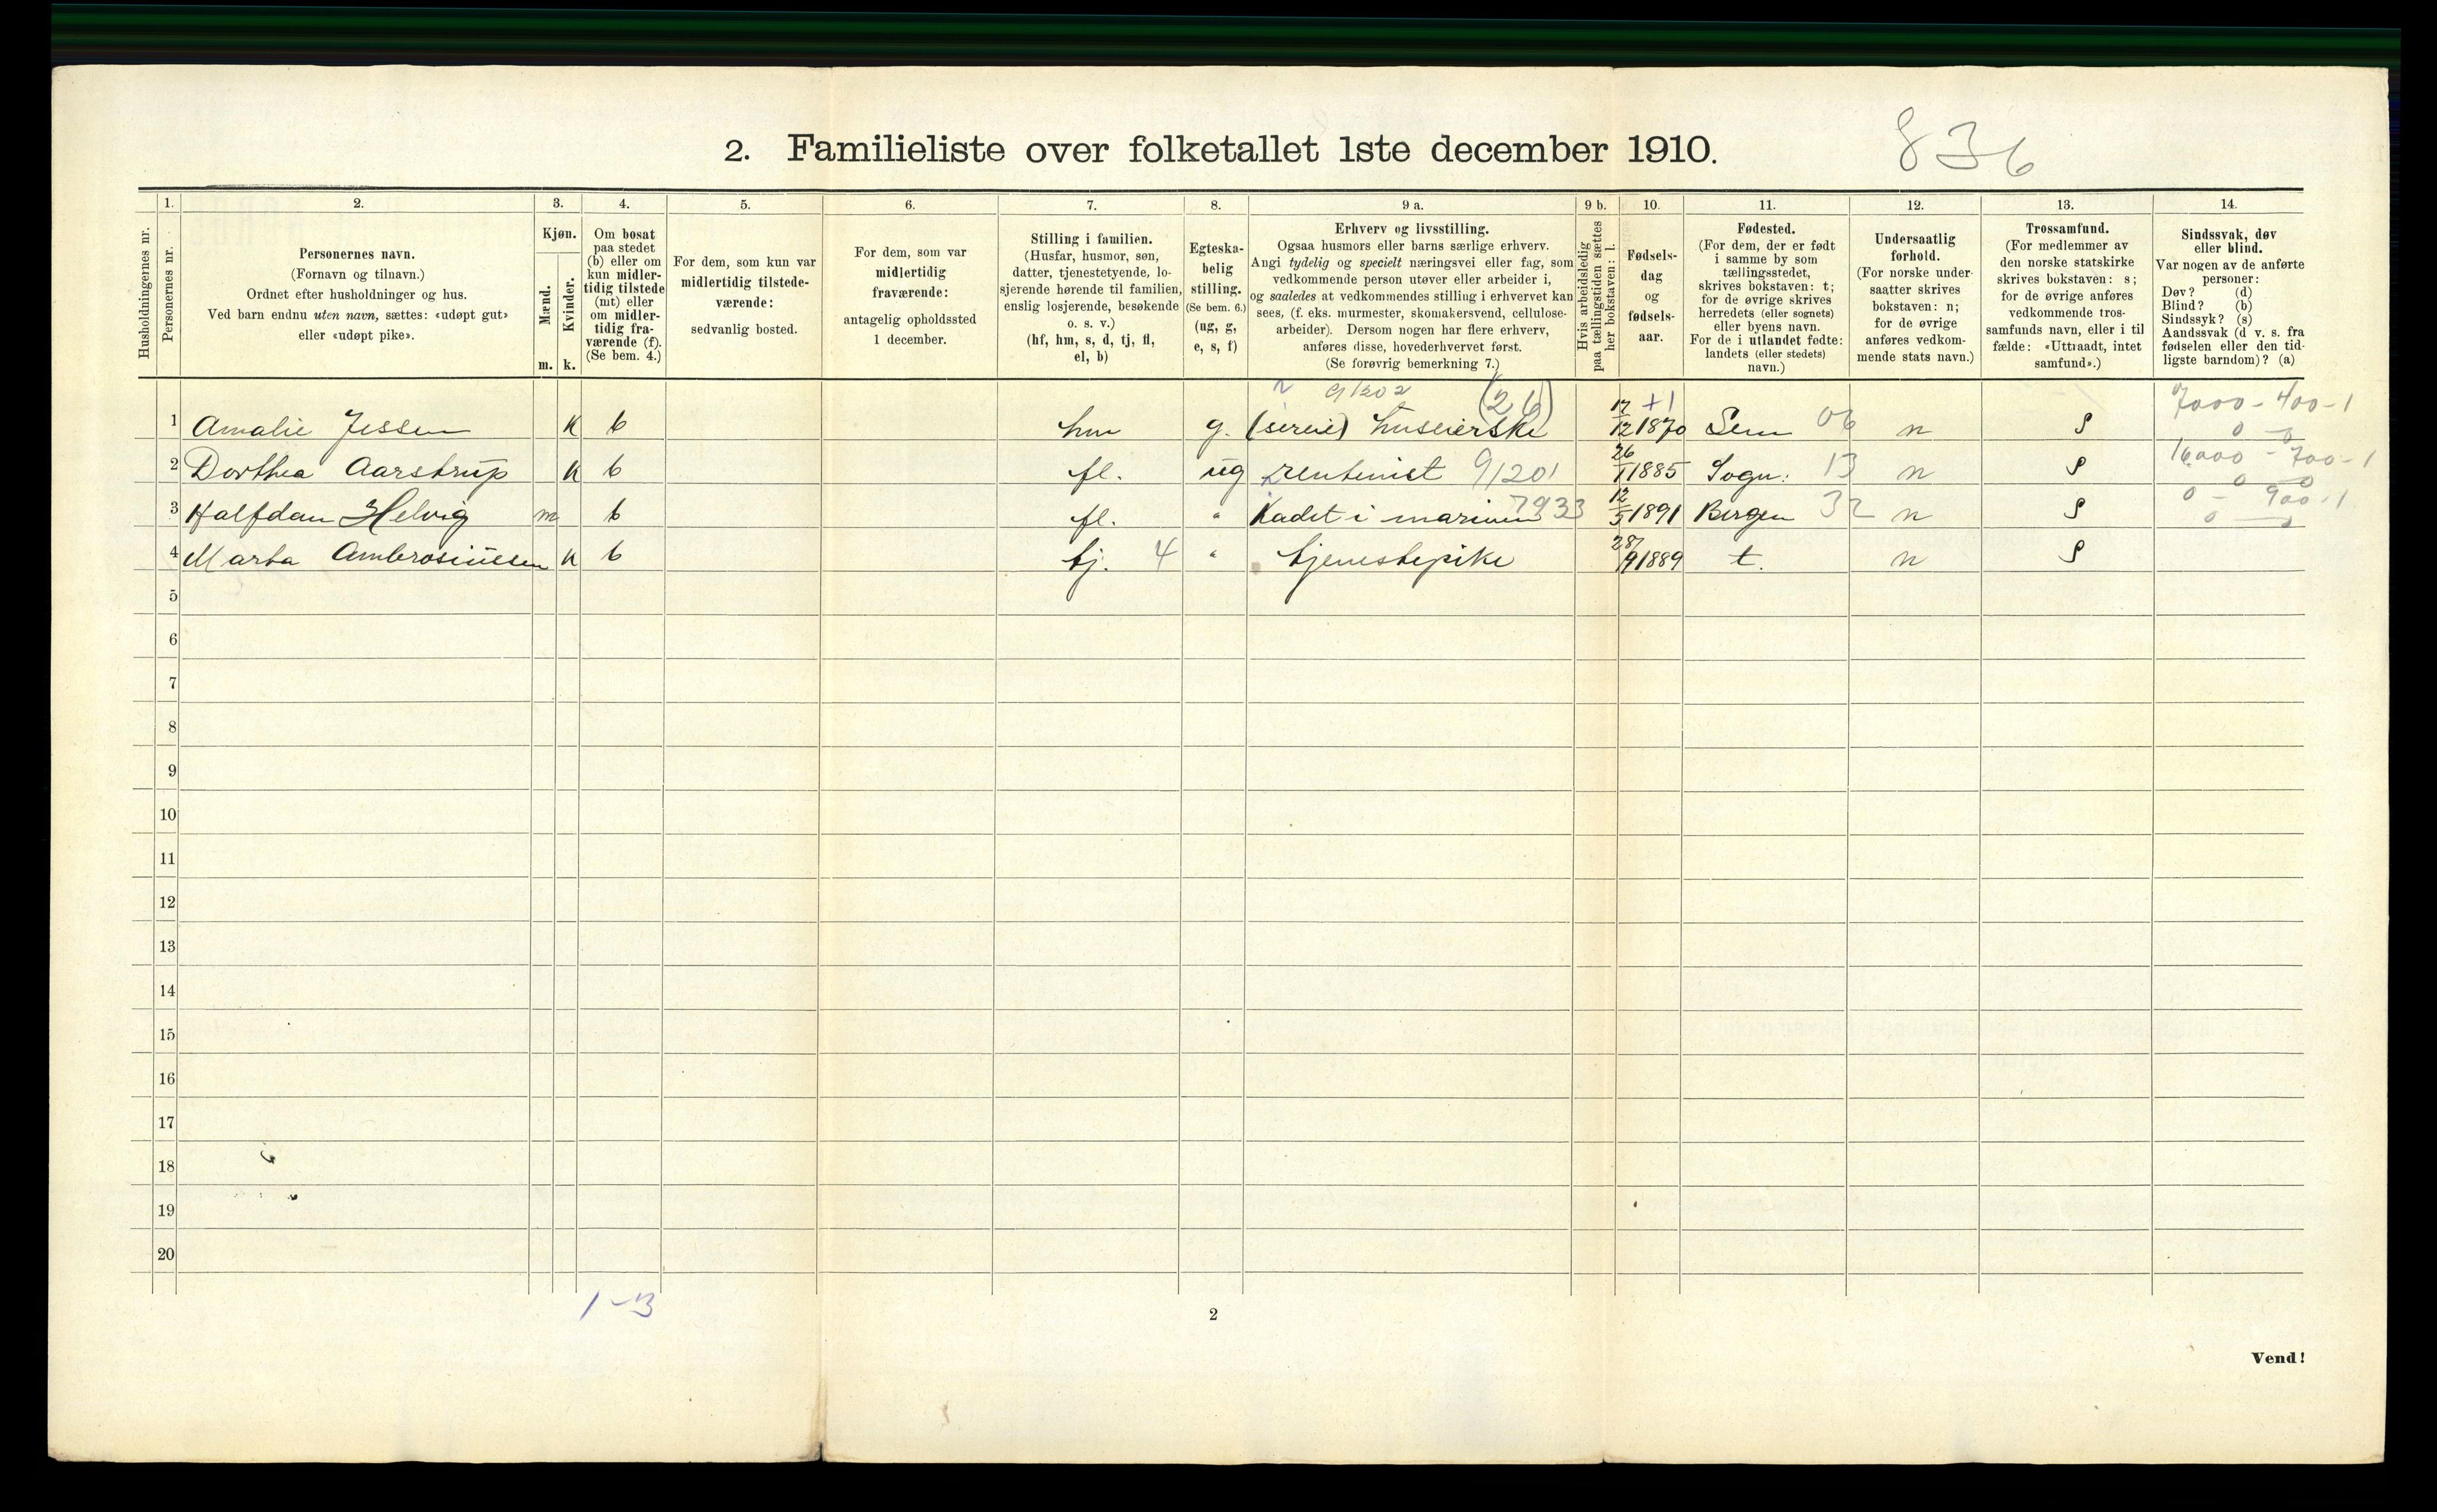 2. Familieliste over folketallet 1ste december 1910.
836
Husholdningernes nr.
1.
Personernes nr.
2.
Personernes navn.
(Fornavn og tilnavn.)
Ordnet efter husholdninger og hus.
Ved barn endnu uten navn, sættes: «udøpt gut»
eller «udøpt pike».
3.
Kjøn.
Mænd.
Kvinder.
m. k.
4.
Om bosat
paa stedet
(b) eller om
kun midler-
tidig tilstede
(mt) eller
om midler-
tidig fra-
værende (f).
(Se bem. 4.)
5.
For dem, som kun var
midlertidig tilstede-
værende:
sedvanlig bosted.
6.
For dem, som var
midlertidig
fraværende:
antagelig opholdssted
1 december.
7.
Stilling i familien.
(Husfar, husmor, søn,
datter, tjenestetyende, lo-
sjerende hørende til familien,
enslig losjerende, besøkende
o. s. v.)
(hf, hm, s, d, tj, fl,
el, b)
8.
Egteska-
belig
stilling.
(Se bem. 6.)
(ug, g,
e, s, f)
9 a.
Erhverv og livsstilling.
Ogsaa husmors eller barns særlige erhverv.
Angi tydelig og specielt næringsvei eller fag, som
vedkommende person utøver eller arbeider i,
og saaledes at vedkommendes stilling i erhvervet kan
sees, (f. eks. murmester, skomakersvend, cellulose-
arbeider). Dersom nogen har flere erhverv,
anføres disse, hovederhvervet først.
(Se forøvrig bemerkning 7.)
9 b.
Hvis arbeidsledig
paa tællingstiden sættes
her bokstaven: l.
10.
Fødsels-
dag
og
fødsels-
aar.
11.
Fødested.
(For dem, der er født
i samme by som
tællingsstedet,
skrives bokstaven: t;
for de øvrige skrives
herredets (eller sognets)
eller byens navn.
For de i utlandet fødte:
landets (eller stedets)
navn.)
12.
Undersaatlig
forhold.
(For norske under-
saatter skrives
bokstaven: n;
for de øvrige
anføres vedkom-
mende stats navn.)
13.
Trossamfund.
(For medlemmer av
den norske statskirke
skrives bokstaven: s;
for de øvrige anføres
vedkommende tros-
samfunds navn, eller i til
fælde: «Uttraadt, intet
samfund».)
14.
Sindssvak, døv
eller blind.
Var nogen av de anførte
personer:
Døv? (d)
Blind? (b)
Sindssyk? (s)
Aandssvak (d v. s. fra
fødselen eller den tid-
ligste barndom)? (a)
91202 (26) +1 7000 - 400 - 1
1 Amalie Jessen k b hm g. huseierske 17/12 1870 Sem 06 n s 0 - 0
2 Dorthea Aarstrup k b fl. ug rentenist 91201 26/1 1885 Sogn: 13 n s 16000 - 700 - 1 0 0
3 Halfdan Helvig m b fl. " Kadet i marinen 7933 12/5 1891 Bergen 32 n s 0 - 900 - 1 0
4 Marta Ambrosiussen k b tj. 4 " tjenestepike 28/9 1889 t. n s
5
6
7
8
9
10
11
12
13
14
15
16
17
18
19
20
1-3
2
Vend!